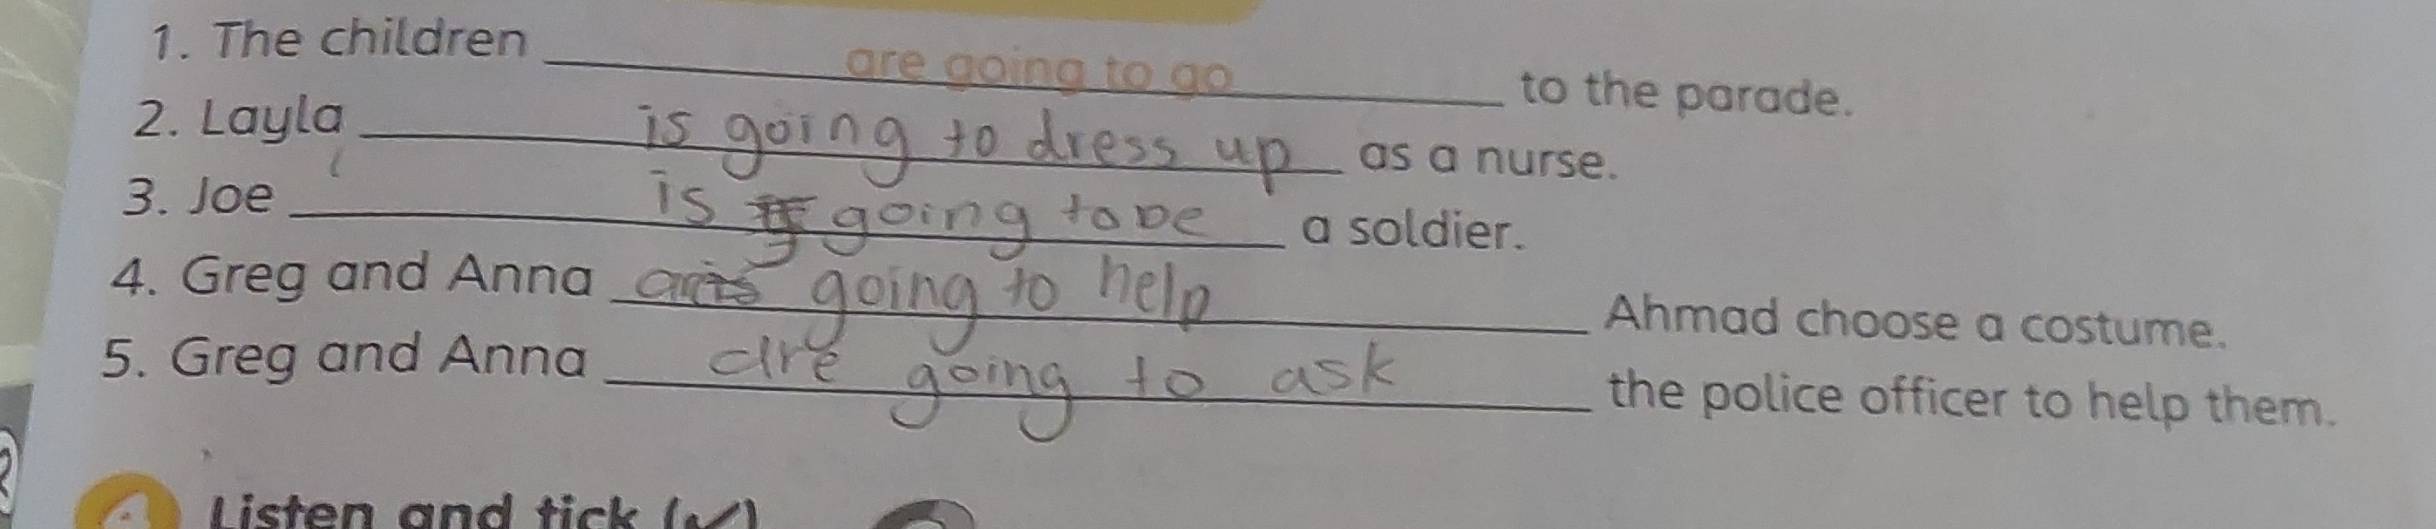 1. The children are going to go to the parade.
2. Layla is going to dress up as a nurse.
3. Joe is going to be a soldier.
4. Greg and Anna going to help Ahmad choose a costume.
5. Greg and Anna are going to ask the police officer to help them.
Listen and tick (✓)